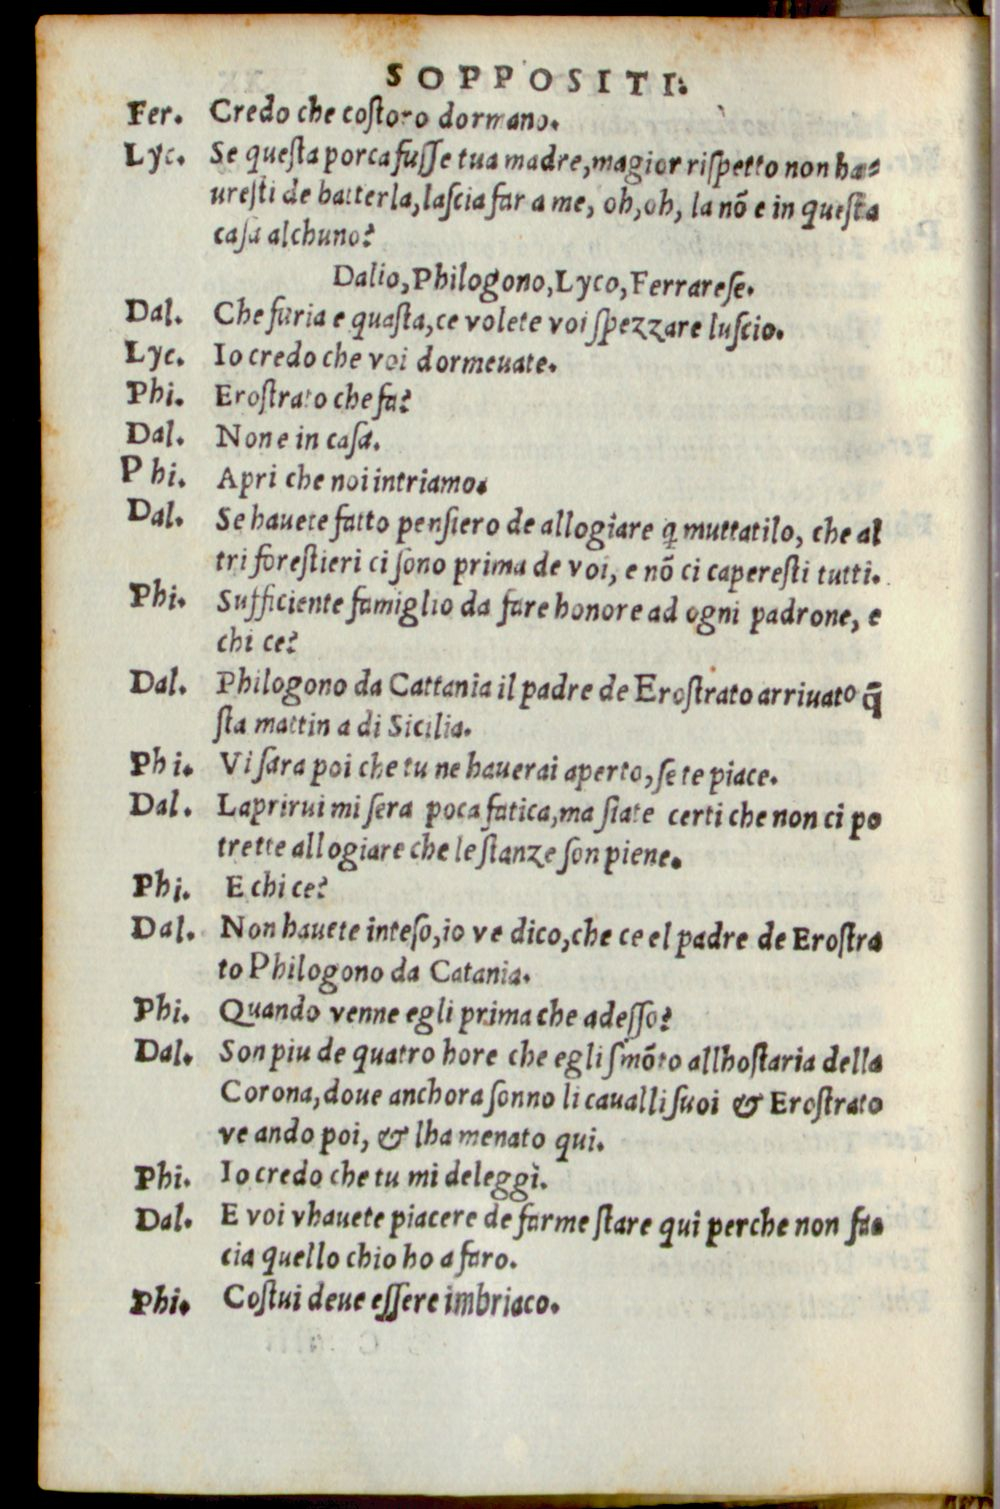 SOPPOSITI.
Fer. Credo che coſtoro dormano.
Lyc. Se queſta porca fuſſe tua madre, magior riſpetto non ha-
ureſti de batterla, laſcia far a me, oh, oh, la nõ e in queſta
caſa alchuno?
Dalio, Philogono, Lyco, Ferrareſe.
Dal. Che furia e quaſta, ce volete voi ſpezzare luſcio.
Lyc. Io credo che voi dormeuate.
Phi. Eroſtrato che fa?
Dal. Non e in caſa.
Phi. Apri che noi intriamo.
Dal. Se hauete fatto penſiero de allogiare q̃ muttatilo, che al
tri foreſtieri ci ſono prima de voi, e nõ ci capereſti tutti.
Phi. Sufficiente famiglio da fare honore ad ogni padrone, e
chi ce?
Dal. Philogono da Cattania il padre de Eroſtrato arriuato q̃
ſta mattin a di Sicilia.
Phi. Vi ſara poi che tu ne hauerai aperto, ſe te piace.
Dal. Laprirui mi ſera poca fatica, ma ſiate certi che non ci po
trette allogiare che le ſtanze ſon piene.
Phi. E chi ce?
Dal. Non hauete inteſo, io ve dico, che ce el padre de Eroſtra
to Philogono da Catania.
Phi. Quando venne egli prima che adeſſo?
Dal. Son piu de quatro hore che egli ſmõto allhoſtaria della
Corona, doue anchora ſonno li caualli ſuoi & Eroſtrato
ve ando poi, & lha menato qui.
Phi. Io credo che tu mi deleggi.
Dal. E voi vhauete piacere de farme ſtare qui perche non fa-
cia quello chio ho a faro.
Phi. Coſtui deue eſſere imbriaco.